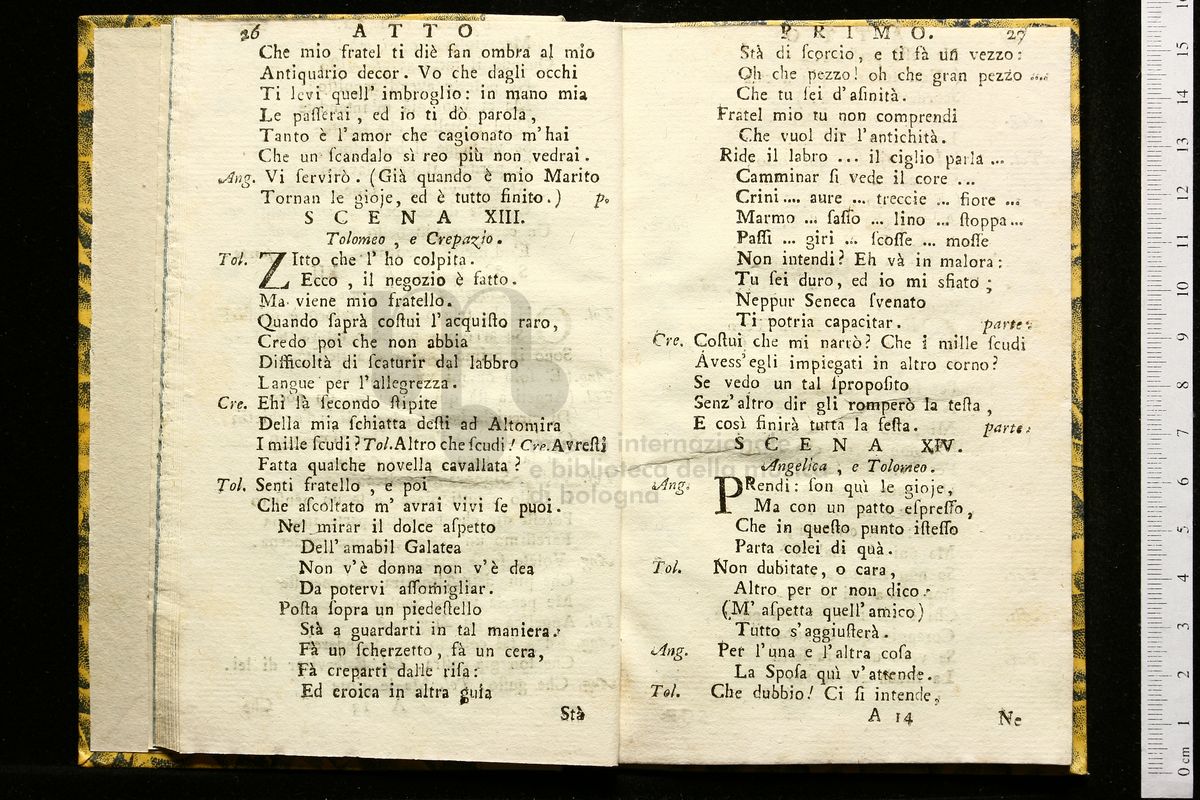 26 ATTO
Che mio fratel ti diè ſan ombra al mio
Antiquario decor. Vo che dagli occhi
Ti levi quell' imbroglio: in mano mia
Le paſſerai, ed io ti dò parola,
Tanto è l'amor che cagionato m'hai
Che un ſcandalo sì reo più non vedrai.
Ang. Vi ſervirò. (Già quando è mio Marito
Tornan le gioje, ed è tutto finito.) p.
SCENA XIII.
Tolomeo, e Crepazio.
Tol. ZItto che l' ho colpita.
Ecco, il negozio è fatto.
Ma viene mio fratello.
Quando ſaprà coſtui l'acquiſto raro,
Credo poi che non abbia
Difficoltà di ſcaturir dal labbro
Langue per l'allegrezza.
Cre. Ehi là ſecondo ſtipite
Della mia ſchiatta deſti ad Altomira
I mille ſcudi? Tol. Altro che ſcudi! Cre. Avreſti
Fatta qualche novella cavallata?
Tol. Senti fratello, e poi
Che aſcoltato m' avrai vivi ſe puoi.
Nel mirar il dolce aſpetto
Dell' amabil Galatea
Non v'è donna non v'è dea
Da potervi aſſomigliar.
Poſta ſopra un piedeſtello
Stà a guardarti in tal maniera.
Fà un ſcherzetto, fà un cera,
Fà creparti dalle riſa:
Ed eroica in altra guiſa
Stà
PRIMO. 27
Stà di ſcorcio, e ti fà un vezzo:
Oh che pezzo! oh che gran pezzo ....
Che tu ſei d'aſinità.
Fratel mio tu non comprendi
Che vuol dir l'antichità.
Ride il labro ... il ciglio parla ...
Camminar ſi vede il core ...
Crini.... aure ... treccie ... fiore ...
Marmo ... ſaſſo ... lino ... ſtoppa...
Paſſi ... giri ... ſcoſſe ... moſſe
Non intendi? Eh và in malora:
Tu ſei duro, ed io mi sfiato;
Neppur Seneca ſvenato
Ti potria capacitar. parte.
Cre. Coſtui che mi narrò? Che i mille ſcudi
Avess'egli impiegati in altro corno?
Se vedo un tal ſpropoſito
Senz'altro dir gli romperò la teſta,
E così finirà tutta la feſta. parte.
SCENA XIV.
Angelica, e Tolomeo.
Ang. PRendi: ſon quì le gioje,
Ma con un patto eſpreſſo,
Che in queſto punto iſteſſo
Parta colei di quà.
Tol. Non dubitate, o cara,
Altro per or non dico.
(M' aſpetta quell'amico)
Tutto s'aggiuſterà.
Ang. Per l'una e l'altra coſa
La Spoſa quì v'attende.
Tol. Che dubbio! Ci ſi intende,
A 14 Ne
internazionale
e biblioteca della mu
di bologna
0 cm 1 2 3 4 5 6 7 8 9 10 11 12 13 14 15